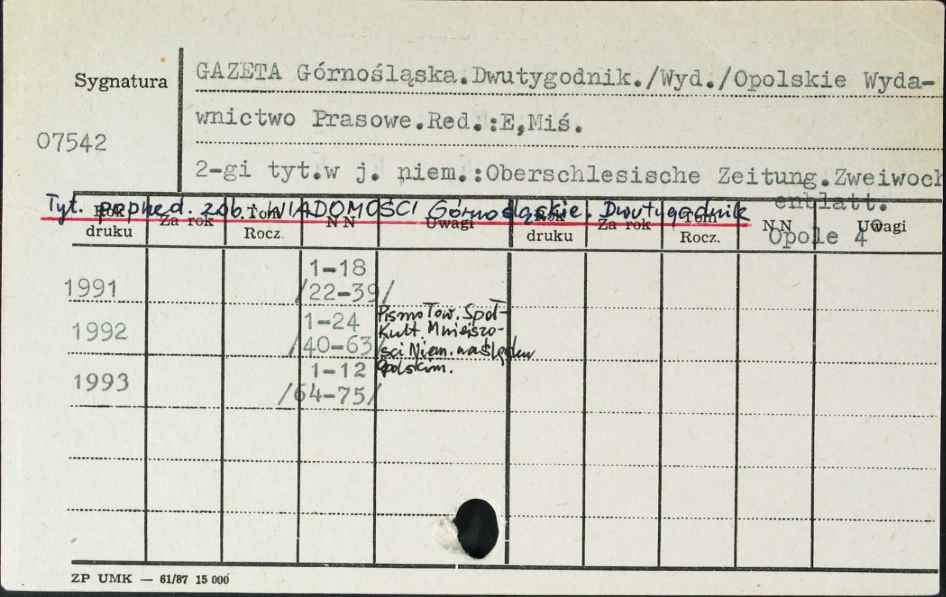 Sygnatura
07542
GAZETA Górnośląska.Dwutygodnik./Wyd./Opolskie Wyda-
wnictwo Prasowe.Red.:E,Miś.
2-gi tyt.w j. niem.:Oberschlesische Zeitung.Zweiwoch
enblatt.
Tyt. poprzed. zob.: WIADOMOŚCI Górnośląskie. Dwutygodnik
Opole 4
Rok druku Za rok Tom Rocz. NN Uwagi Rok druku Za rok Tom Rocz. NN Uwagi
1991 1-18
/22-39/
1992 1-24
/40-63/
1993 1-12
/64-75/
Pismo Tow. Społ-
Kult. Mniejszo-
ści Niem. na Śląsku
Opolskim.
ZP UMK — 61/87 15 000